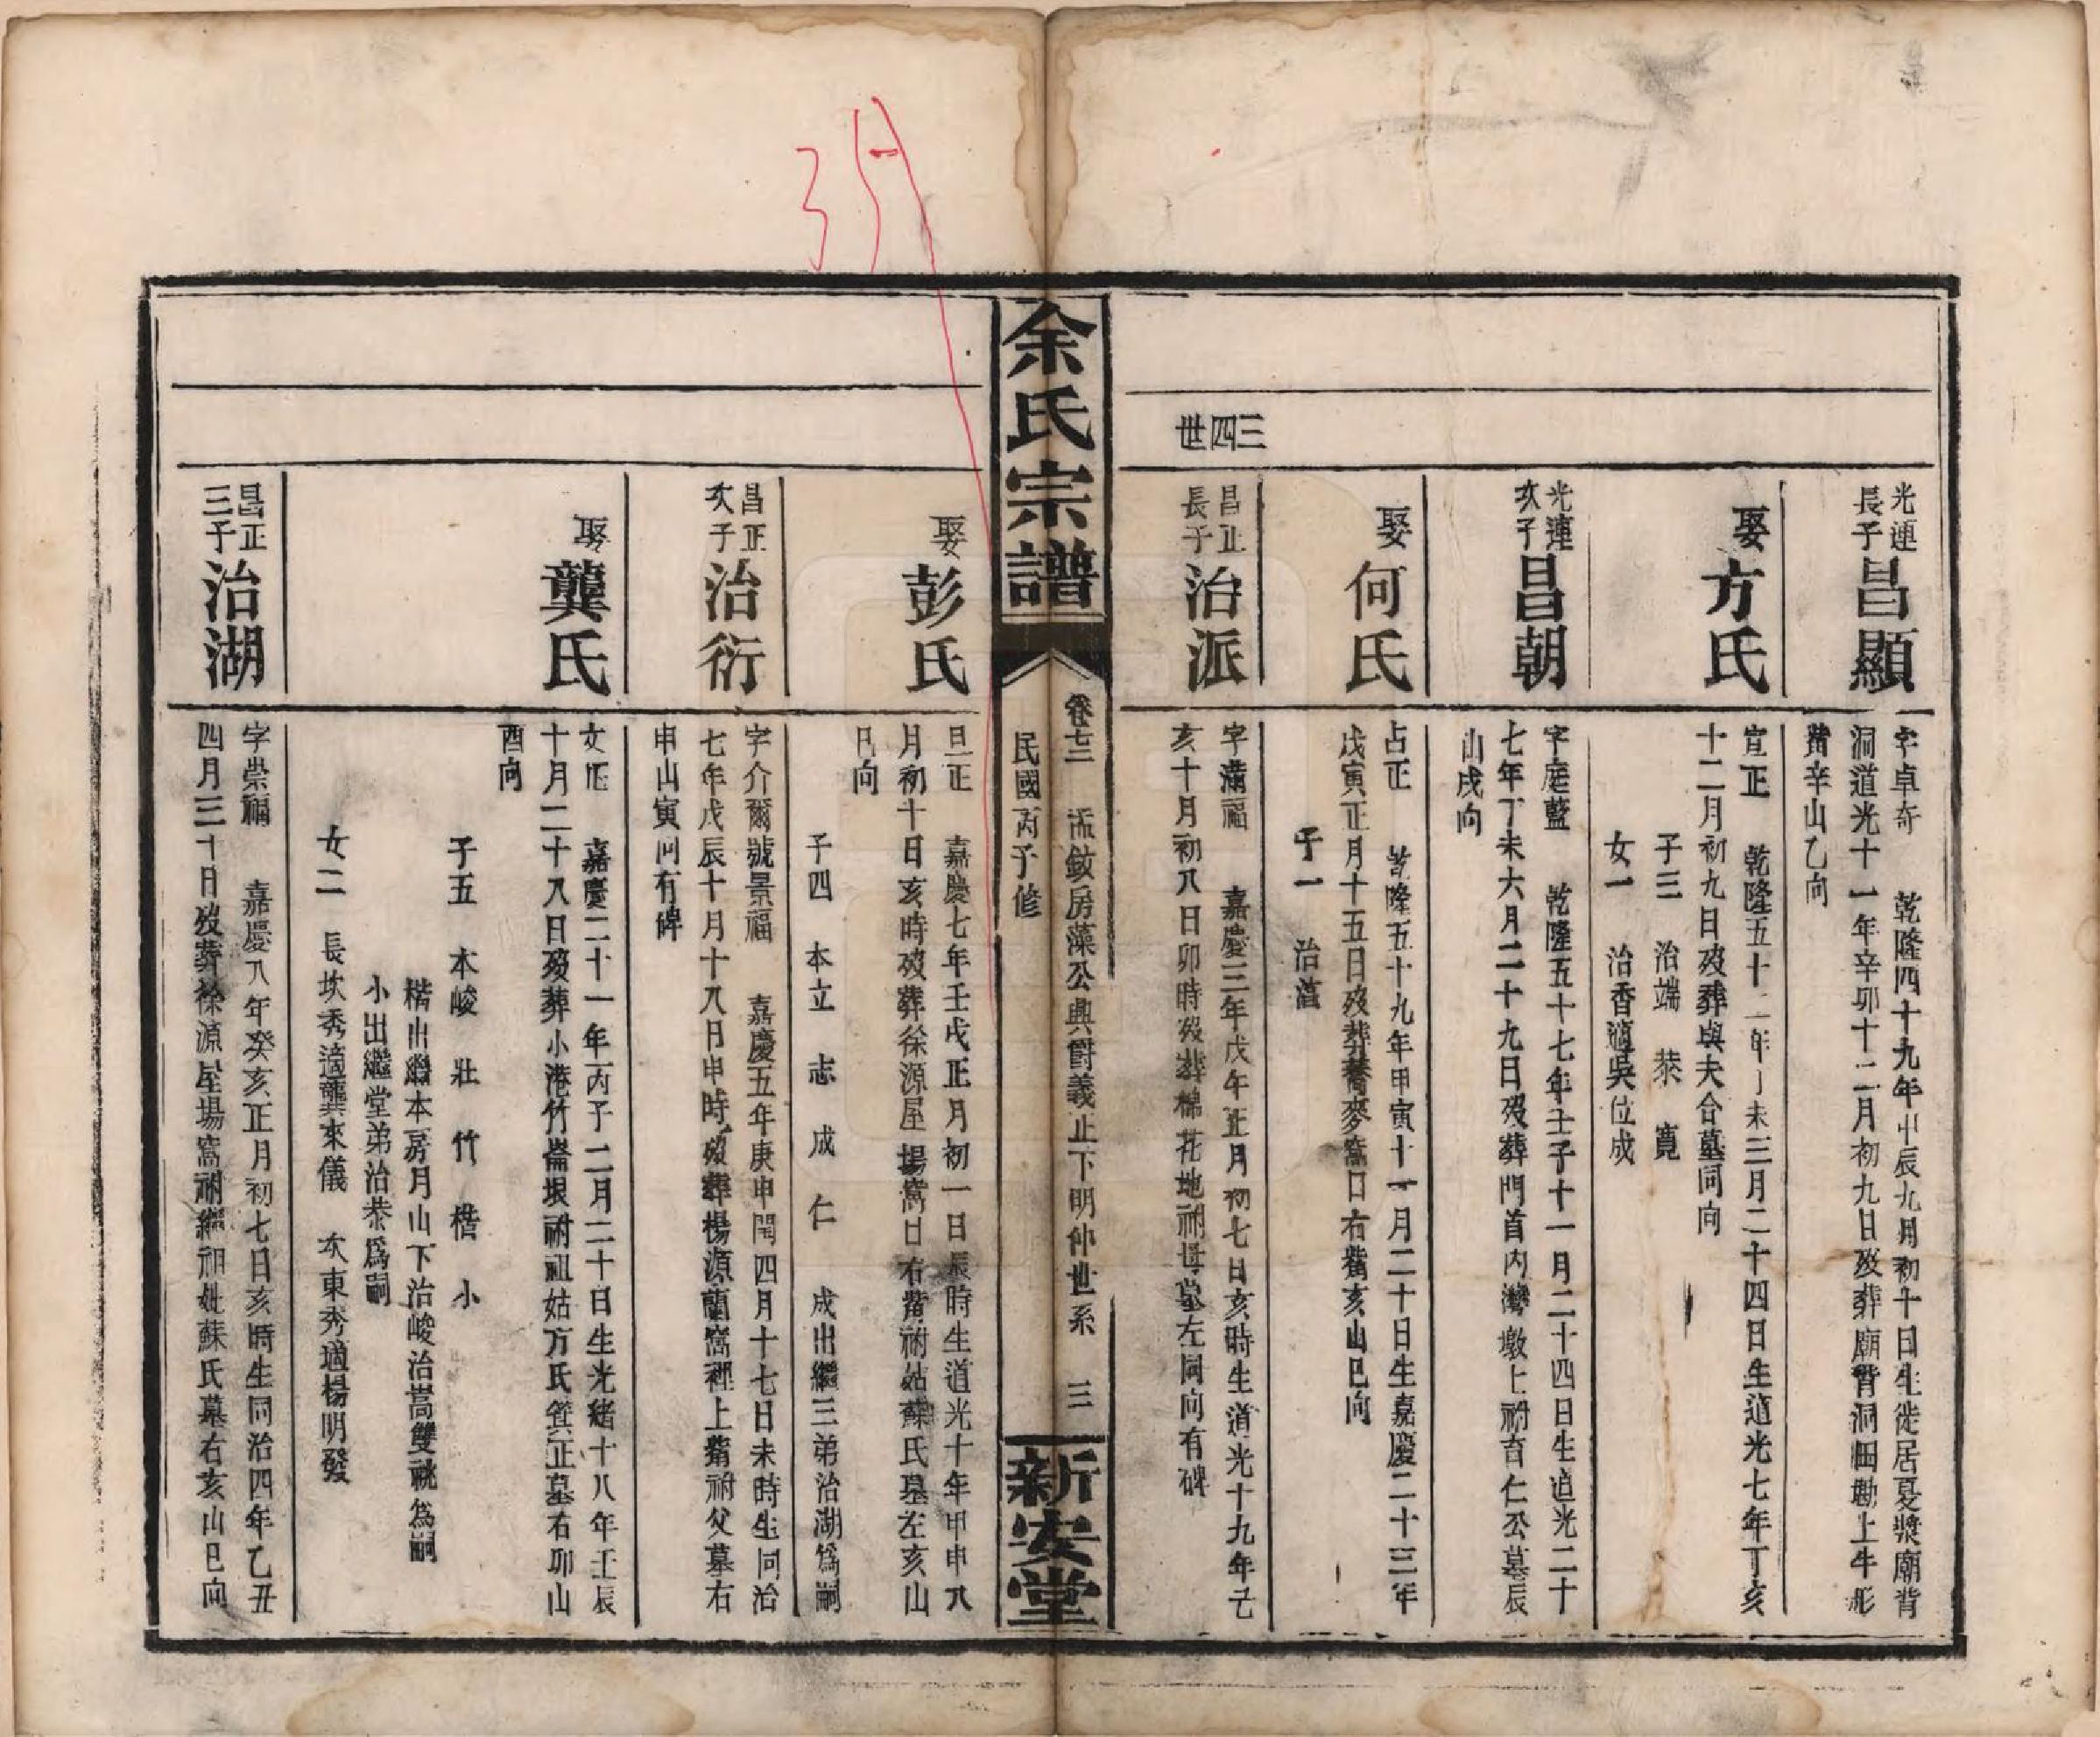 光連
長子
昌顯
字卓奇 乾隆四十九年甲辰九月初十日生徙居夏漿廟背
洞道光十一年辛卯十二月初九日歿葬廟背洞田勘上牛形
嘴辛山乙向
娶
方氏
宜正 乾隆五十二年丁未三月二十四日生道光七年丁亥
十二月初九日歿葬與夫合墓同向
子三 治端 恭 寬
女一 治香適吳位成
光連
次子
昌朝
字庭藍 乾隆五十七年壬子十一月二十四日生道光二十
七年丁未六月二十九日歿葬門首內灣墩上祔育仁公墓辰
山戌向
娶
何氏
占正 乾隆五十九年甲寅十一月二十日生嘉慶二十三年
戊寅正月十五日歿葬蕎麥窩口右嘴亥山巳向
子一 治
三四世
昌正
長子
治派
字滿福 嘉慶三年戊午正月初七日亥時生道光十九年己
亥十月初八日卯時歿葬棉花地祔母墓左同向有碑
余氏宗譜
卷七三 孟敏房藻公典爵義正下明仲世系 三
民國丙子修
新安堂
娶
彭氏
旦正 嘉慶七年壬戌正月初一日辰時生道光十年甲申八
月初十日亥時歿葬徐源屋場窩日右嘴祔姑蘇氏墓左亥山
巳向
子四 本立 志 成 仁 成出繼三弟治湖爲嗣
昌正
次子
治衍
字介爾號景福 嘉慶五年庚申閏四月十七日未時生同治
七年戊辰十月十八日申時歿葬楊源蘭窩裡上嘴祔父墓右
申山寅向有碑
娶
龔氏
女正 嘉慶二十一年丙子二月二十日生光緒十八年壬辰
十月二十八日歿葬小港竹崙垠祔祖姑方氏箕正墓右卯山
酉向
子五 本峻 壯 竹 楷 小
楷出繼本房月山下治峻治嵩雙祧爲嗣
小出繼堂弟治恭爲嗣
女二 長坎秀適龔來儀 次東秀適楊明發
昌正
三子
治湖
字崇福 嘉慶八年癸亥正月初七日亥時生同治四年乙丑
四月三十日歿葬徐源屋場窩祔繼祖妣蘇氏墓右亥山巳向